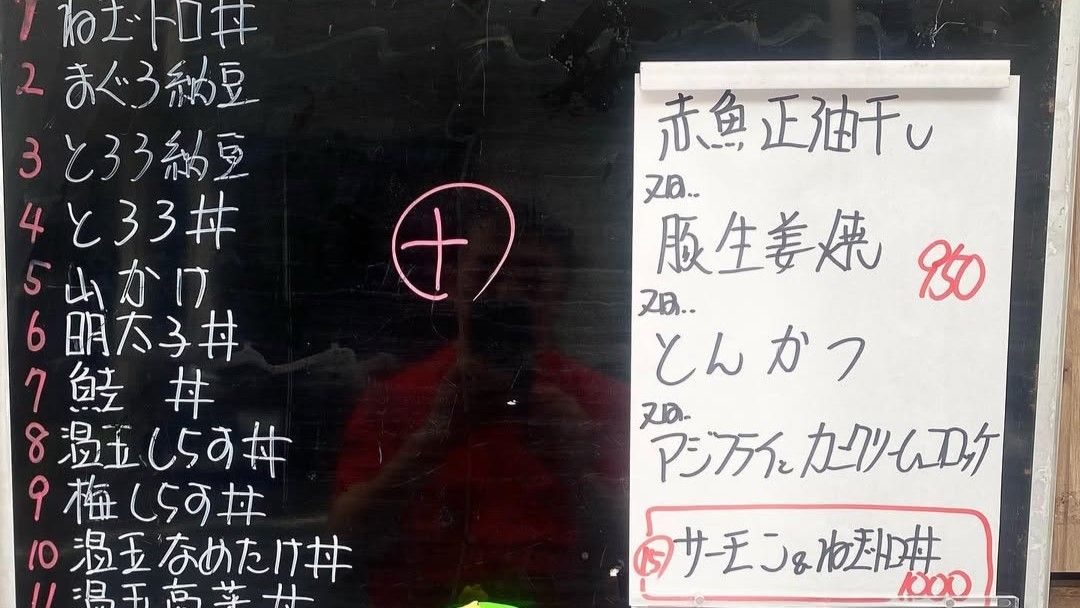 1 ねぎトロ丼
2 まぐろ納豆
3 とろろ納豆
4 とろろ丼
5 山かけ
6 明太子丼
7 鮭 丼
8 温玉しらす丼
9 梅しらす丼
10 温玉なめたけ丼
11 温玉高菜丼
+
赤魚正油干し
又は..
豚生姜焼
950
又は..
とんかつ
又は..
アジフライと カニクリームコロッケ
15 サーモン&ねぎトロ丼
1000